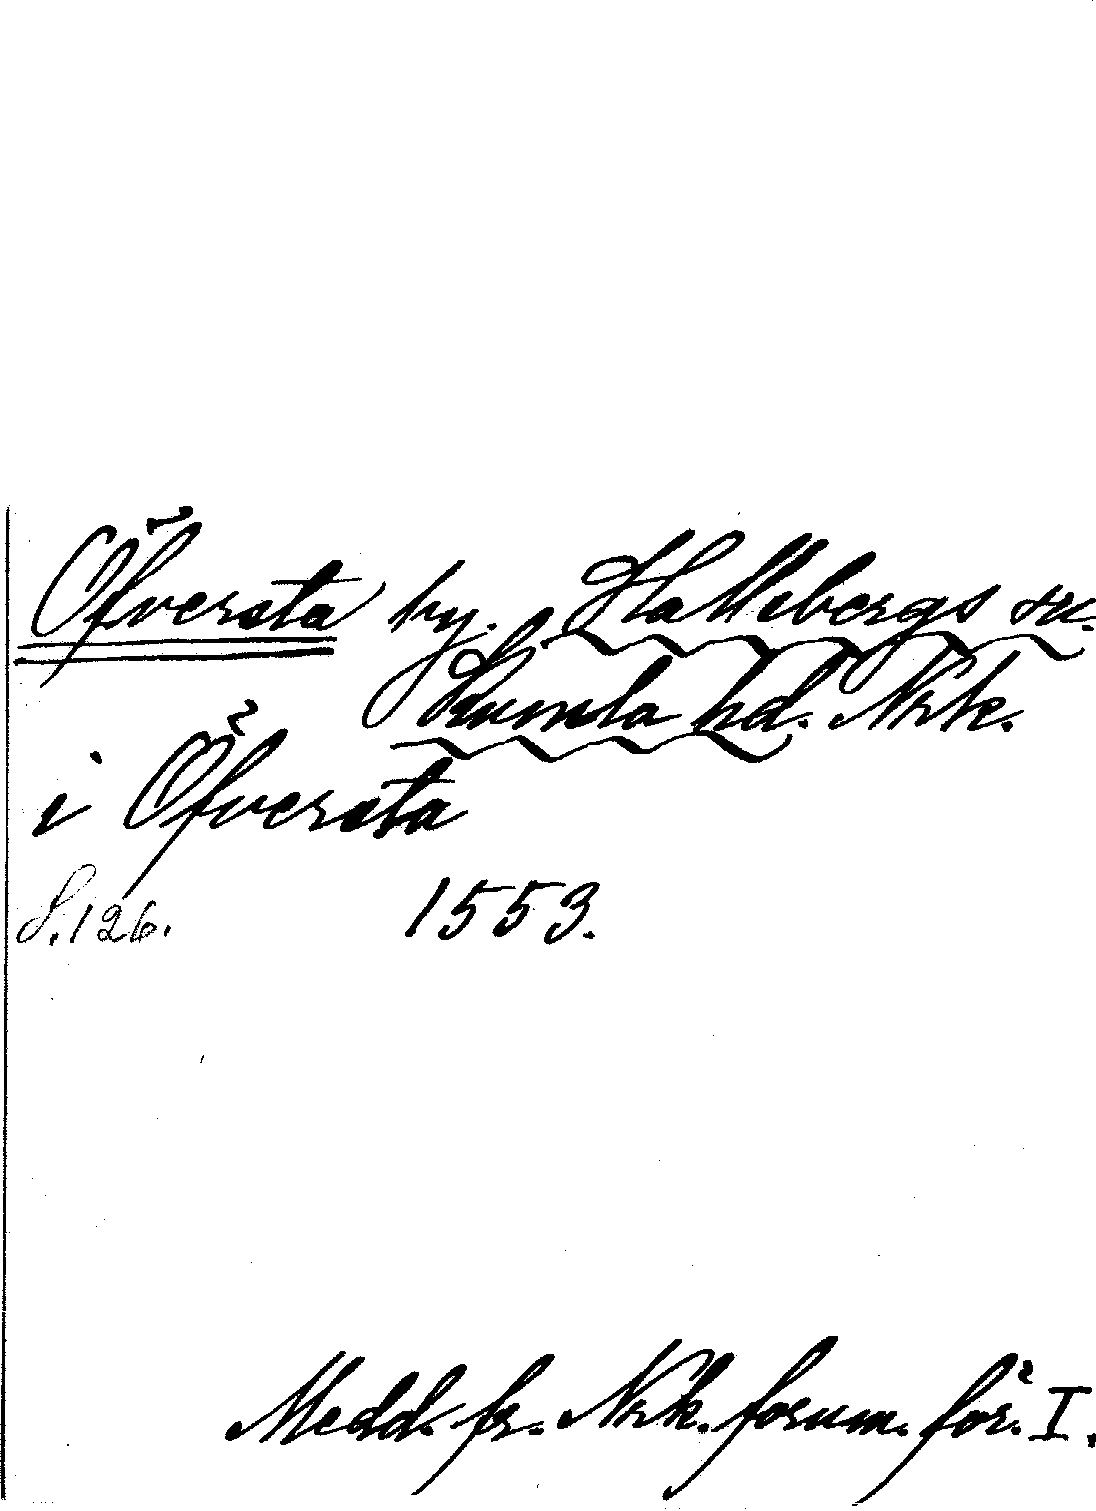 Öfversta by. Hallsbergs sn.
Kumla hd. Nrke.
i Öfversta
S. 126. 1553.
Medd. fr. Nrk. fornm. för. I.